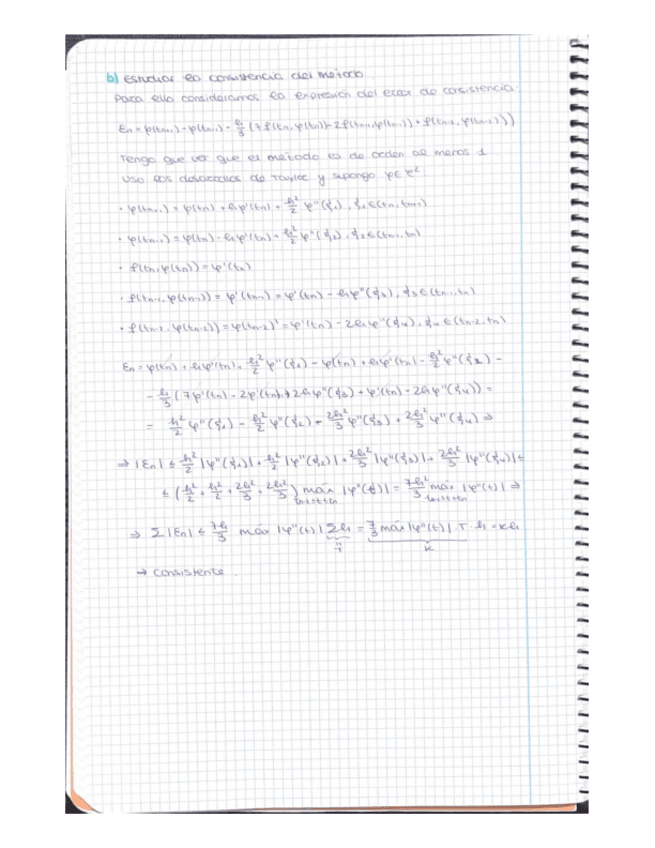 b) Estudiar la consistencia del método.
Para ello consideramos la expresión del error de consistencia.
εn = φ(tn+1) - φ(tn-1) - h/3 (7f(tn,φ(tn)) - 2f(tn-1,φ(tn-1)) + f(tn-2,φ(tn-2)))
Tengo que ver que el método es de orden al menos 1
Uso los desarrollos de Taylor y supongo φ ∈ C²
· φ(tn+1) = φ(tn) + hφ'(tn) + h²/2 φ''(ξ1), ξ1 ∈ (tn, tn+1)
· φ(tn-1) = φ(tn) - hφ'(tn) + h²/2 φ''(ξ2), ξ2 ∈ (tn-1, tn)
· f(tn, φ(tn)) = φ'(tn)
· f(tn-1, φ(tn-1)) = φ'(tn-1) = φ'(tn) - hφ''(ξ3), ξ3 ∈ (tn-1, tn)
· f(tn-2, φ(tn-2)) = φ(tn-2)' = φ'(tn) - 2hφ''(ξ4), ξ4 ∈ (tn-2, tn)
εn = φ(tn) + hφ'(tn) + h²/2 φ''(ξ1) - φ(tn) + hφ'(tn) - h²/2 φ''(ξ2) -
- h/3 (7φ'(tn) - 2φ'(tn) + 2hφ''(ξ3) + φ'(tn) - 2hφ''(ξ4)) =
= h²/2 φ''(ξ1) - h²/2 φ''(ξ2) - 2h²/3 φ''(ξ3) + 2h²/3 φ''(ξ4) ⇒
⇒ |εn| ≤ h²/2 |φ''(ξ1)| + h²/2 |φ''(ξ2)| + 2h²/3 |φ''(ξ3)| + 2h²/3 |φ''(ξ4)| ≤
≤ (h²/2 + h²/2 + 2h²/3 + 2h²/3) máx |φ''(t)| = 7h²/3 máx |φ''(t)| ⇒
⇒ Σ|εn| ≤ 7h/3 máx |φ''(t)| Σh = 7/3 máx |φ''(t)| . T . h = kh
T k
→ consistente.